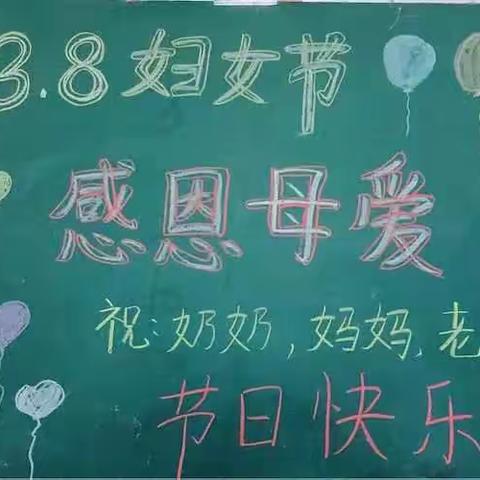 3.8妇女节
感恩母爱
祝:奶奶,妈妈,老
节日快乐